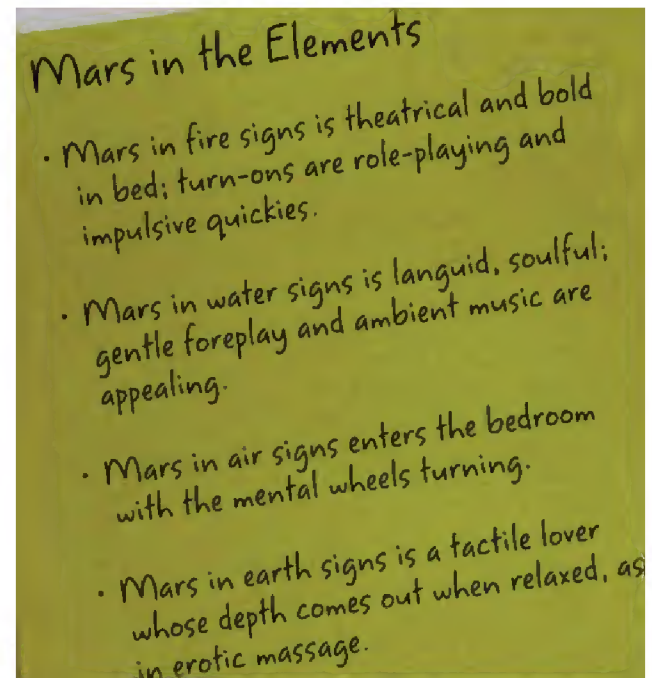 Mars in the Elements
· Mars in fire signs is theatrical and bold
in bed; turn-ons are role-playing and
impulsive quickies.
· Mars in water signs is languid, soulful;
gentle foreplay and ambient music are
appealing.
· Mars in air signs enters the bedroom
with the mental wheels turning.
· Mars in earth signs is a tactile lover
whose depth comes out when relaxed, as
in erotic massage.